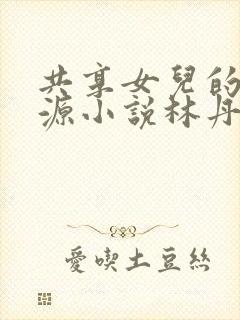 共享女兒的
源小說林丹
愛喫土豆絲